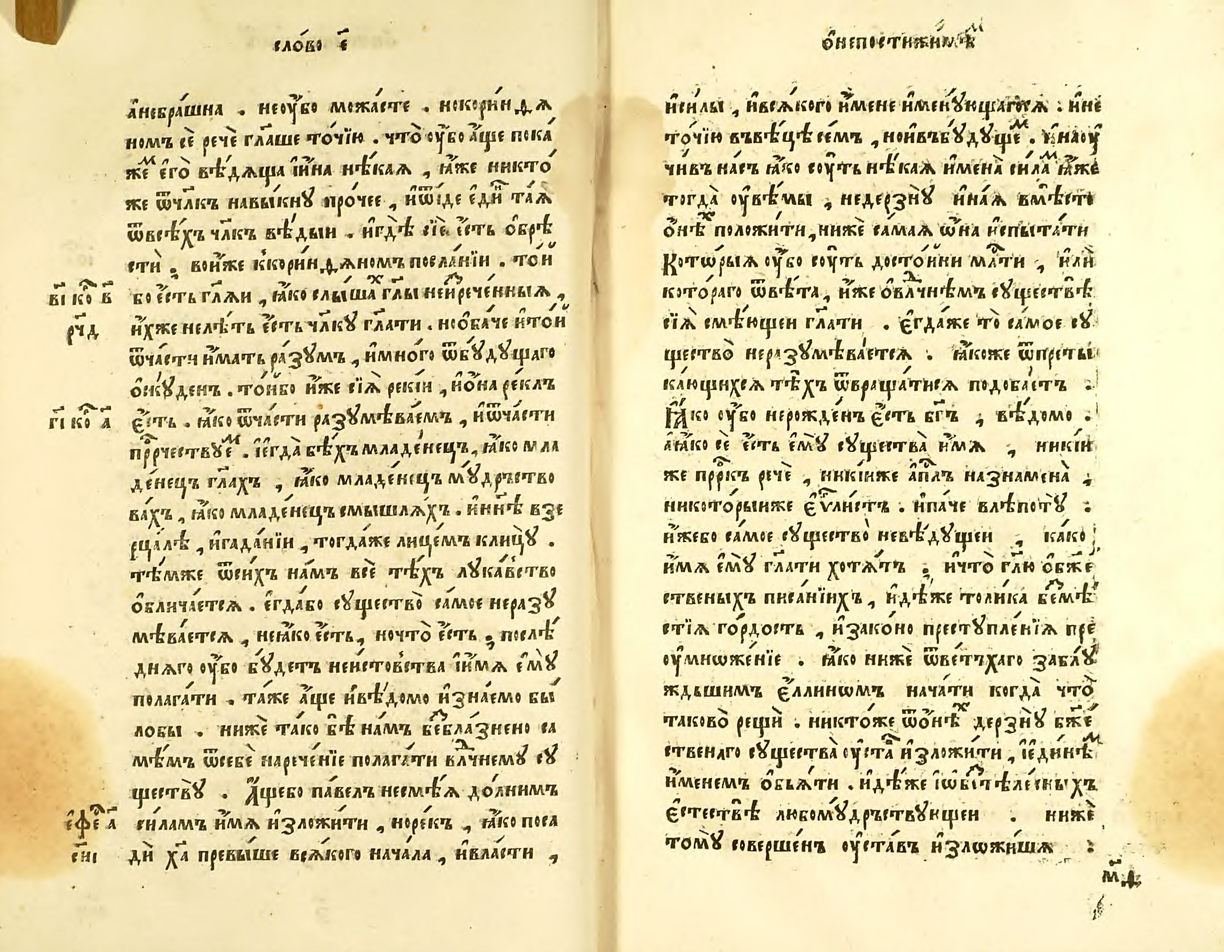 сло́во є҃
а҆небра́шна . неоу҆́бо мо́жасте . нскори́нѳѧ
номъ сѐ речѐ гл҃аше то́чїю . что̀ оу҆́бо а҆́ще пока́
же его̀ вѣ́дѧща и҆и́на нѣ́каѧ , ꙗ҆́же никто́
же ѿчл҃къ навы́кнꙋ про́чее , и҆ѿи́де еди́ та́ѧ
ѿвсѣ́хъ чл҃къ вѣ́дыи . и҆гдѣ̀ сїѐ е҆́сть о҆брѣ́
сти̂ ; вои҆́же к҆кори́нѳѧномъ посла́нїи . то́и
бо е҆́сть гл҃ѧи , ꙗ҆́ко слы́ша гл҃ы неи҆зрече́нныѧ ,
и҆́хже нелѣ́ть е҆́сть чл҃кꙋ гл҃ати . нсо҆ба́че и҆то́и
ѿча́сти и҆́мать ра́зꙋмъ , и҆мно́го ѿбꙋ́дꙋщаго
о҆скꙋ́денъ . то́ибо и҆́же сїѧ̀ рекі́и , и҆о́на ре́клъ
е҆́сть . ꙗ҆́ко ѿча́сти разꙋмѣва́емъ , и҆ѿча́сти
пр҇рчествꙋе . і҆егда̀ бѣ́хъ младе́нецъ , ꙗ҆́ко мла
де́нецъ гл҃ахъ , ꙗ҆́ко младе́нецъ мꙋ́дрьство
вахъ , ꙗ҆́ко младе́нецъ смышлѧ́хъ . и҆ны́нѣ взе
рца́лѣ , и҆гада́нїи , тогда́же лице́мъ клицꙋ̀ .
тѣ́мже ѿси́хъ на́мъ всѐ тѣ́хъ лꙋка́вьство
о҆блича́етсѧ . е҆гда́бо сꙋщество̀ само́е неразꙋ
мѣва́етсѧ , неꙗ҆́ко е҆́сть , ночто̀ е҆́сть ; послѣ́
днѧго оу҆́бо бꙋ́детъ неи́стовства і҆и́мѧ е҆мꙋ̀
полага́ти . та́же а҆́ще и҆вѣ́домо и҆зна́емо бы́
ло́бы . нижѐ та́ко бѣ̀ на́мъ бебла́знено са
мѣ́мъ ѿсебѐ нарече́нїе полага́ти влⷣчнемꙋ сꙋ
ществꙋ̀ . а҆́щебо па́велъ несмѣ́ѧ до́лнимъ
си́ламъ и҆́мѧ и҆зложи́ти , норе́къ , ꙗ҆́ко поса
дѝ хⷭ҇а превы́ше всѧ́кого нача́ла , и҆вла́сти ,
в҃і ко в҃
рч҃д
г҃і ко а҃
ефе а҃
си҃і
о҆непостижи́мѣⷨ
и҆си́лы , и҆всѧ́кого и҆́мене и҆менꙋ́ющагосѧ : и҆не
то́чїю въвѣ́цѣ се́мъ , нои҆въбꙋ́дꙋщеⷨ . и҆наоу҆
чи́въ на́съ ꙗ҆́ко сꙋ́ть нѣ́каѧ и҆мена̀ си́ламⷨ ꙗ҆́же
тогда̀ оу҆вѣ́мы ; недерзнꙋ̀ и҆на́ѧ вмѣ́сто
о҆нѣⷯ положи́ти , нижѐ сама́ѧ ѡ҆́на и҆спыта́ти
Кото́рыѧ оу҆́бо сꙋ́ть досто́йни мл҃ти , и҆лѝ
кото́раго ѿвѣ́та , и҆́же о҆влⷣчнѣмъ сꙋществѣ̀
сїѧ̀ смѣ́ющеи гл҃ати . е҆гда́же то̀ само́е сꙋ
щество̀ неразꙋмѣва́етсѧ . ꙗ҆́коже ѿпреты
ка́ющихсѧ тѣ́хъ ѿвраща́тисѧ подоба́етъ .
Ꙗ҆́ко оу҆́бо нерожде́нъ е҆́сть бг҃ъ , вѣ́домо .
а҆ꙗ҆́ко сѐ е҆́сть е҆мꙋ̀ сꙋщества̀ и҆́мѧ , ники́и
же прⷪ҇ркъ речѐ , никі́иже а҆пⷭ҇лъ назнамена̀ ;
никото́рыиже е҆ѵⷢ҇ли́стъ . и҆па́че влѣ́потꙋ :
и҆́жебо само́е сꙋщество̀ невѣ́дꙋщеи , ка́ко
и҆́мѧ е҆мꙋ̀ гл҃ати хотѧ́тъ ; и҆что̀ гл҃ю обже
ственыхъ писа́нїихъ , и҆дѣ́же толи́ка безмѣ
стїѧ го́рдость , и҆зако́но престꙋпле́нїѧ пре
оу҆множе́нїе . ꙗ҆́ко нижѐ ѿве́тъхаго заблꙋ́
ждьшимъ е҆́ллинѡмъ нача́ти когда̀ что̀
таково̀ рещѝ . никто́же ѿо҆нѣⷯ дерзнꙋ̀ бжⷭ҇е
ственаго сꙋщества̀ оу҆ста́въ и҆зложи́ти , і҆еди́нѣⷨ
и҆́менемъ о҆бьѧ́ти . и҆дѣ́же і҆ѡбезтѣле́сныхъ
е҆стествѣ̀ любомꙋ́дрьствꙋющеи . нижѐ
томꙋ̀ соверше́нъ оу҆ста́въ и҆зложи́шѧ :
м҃д